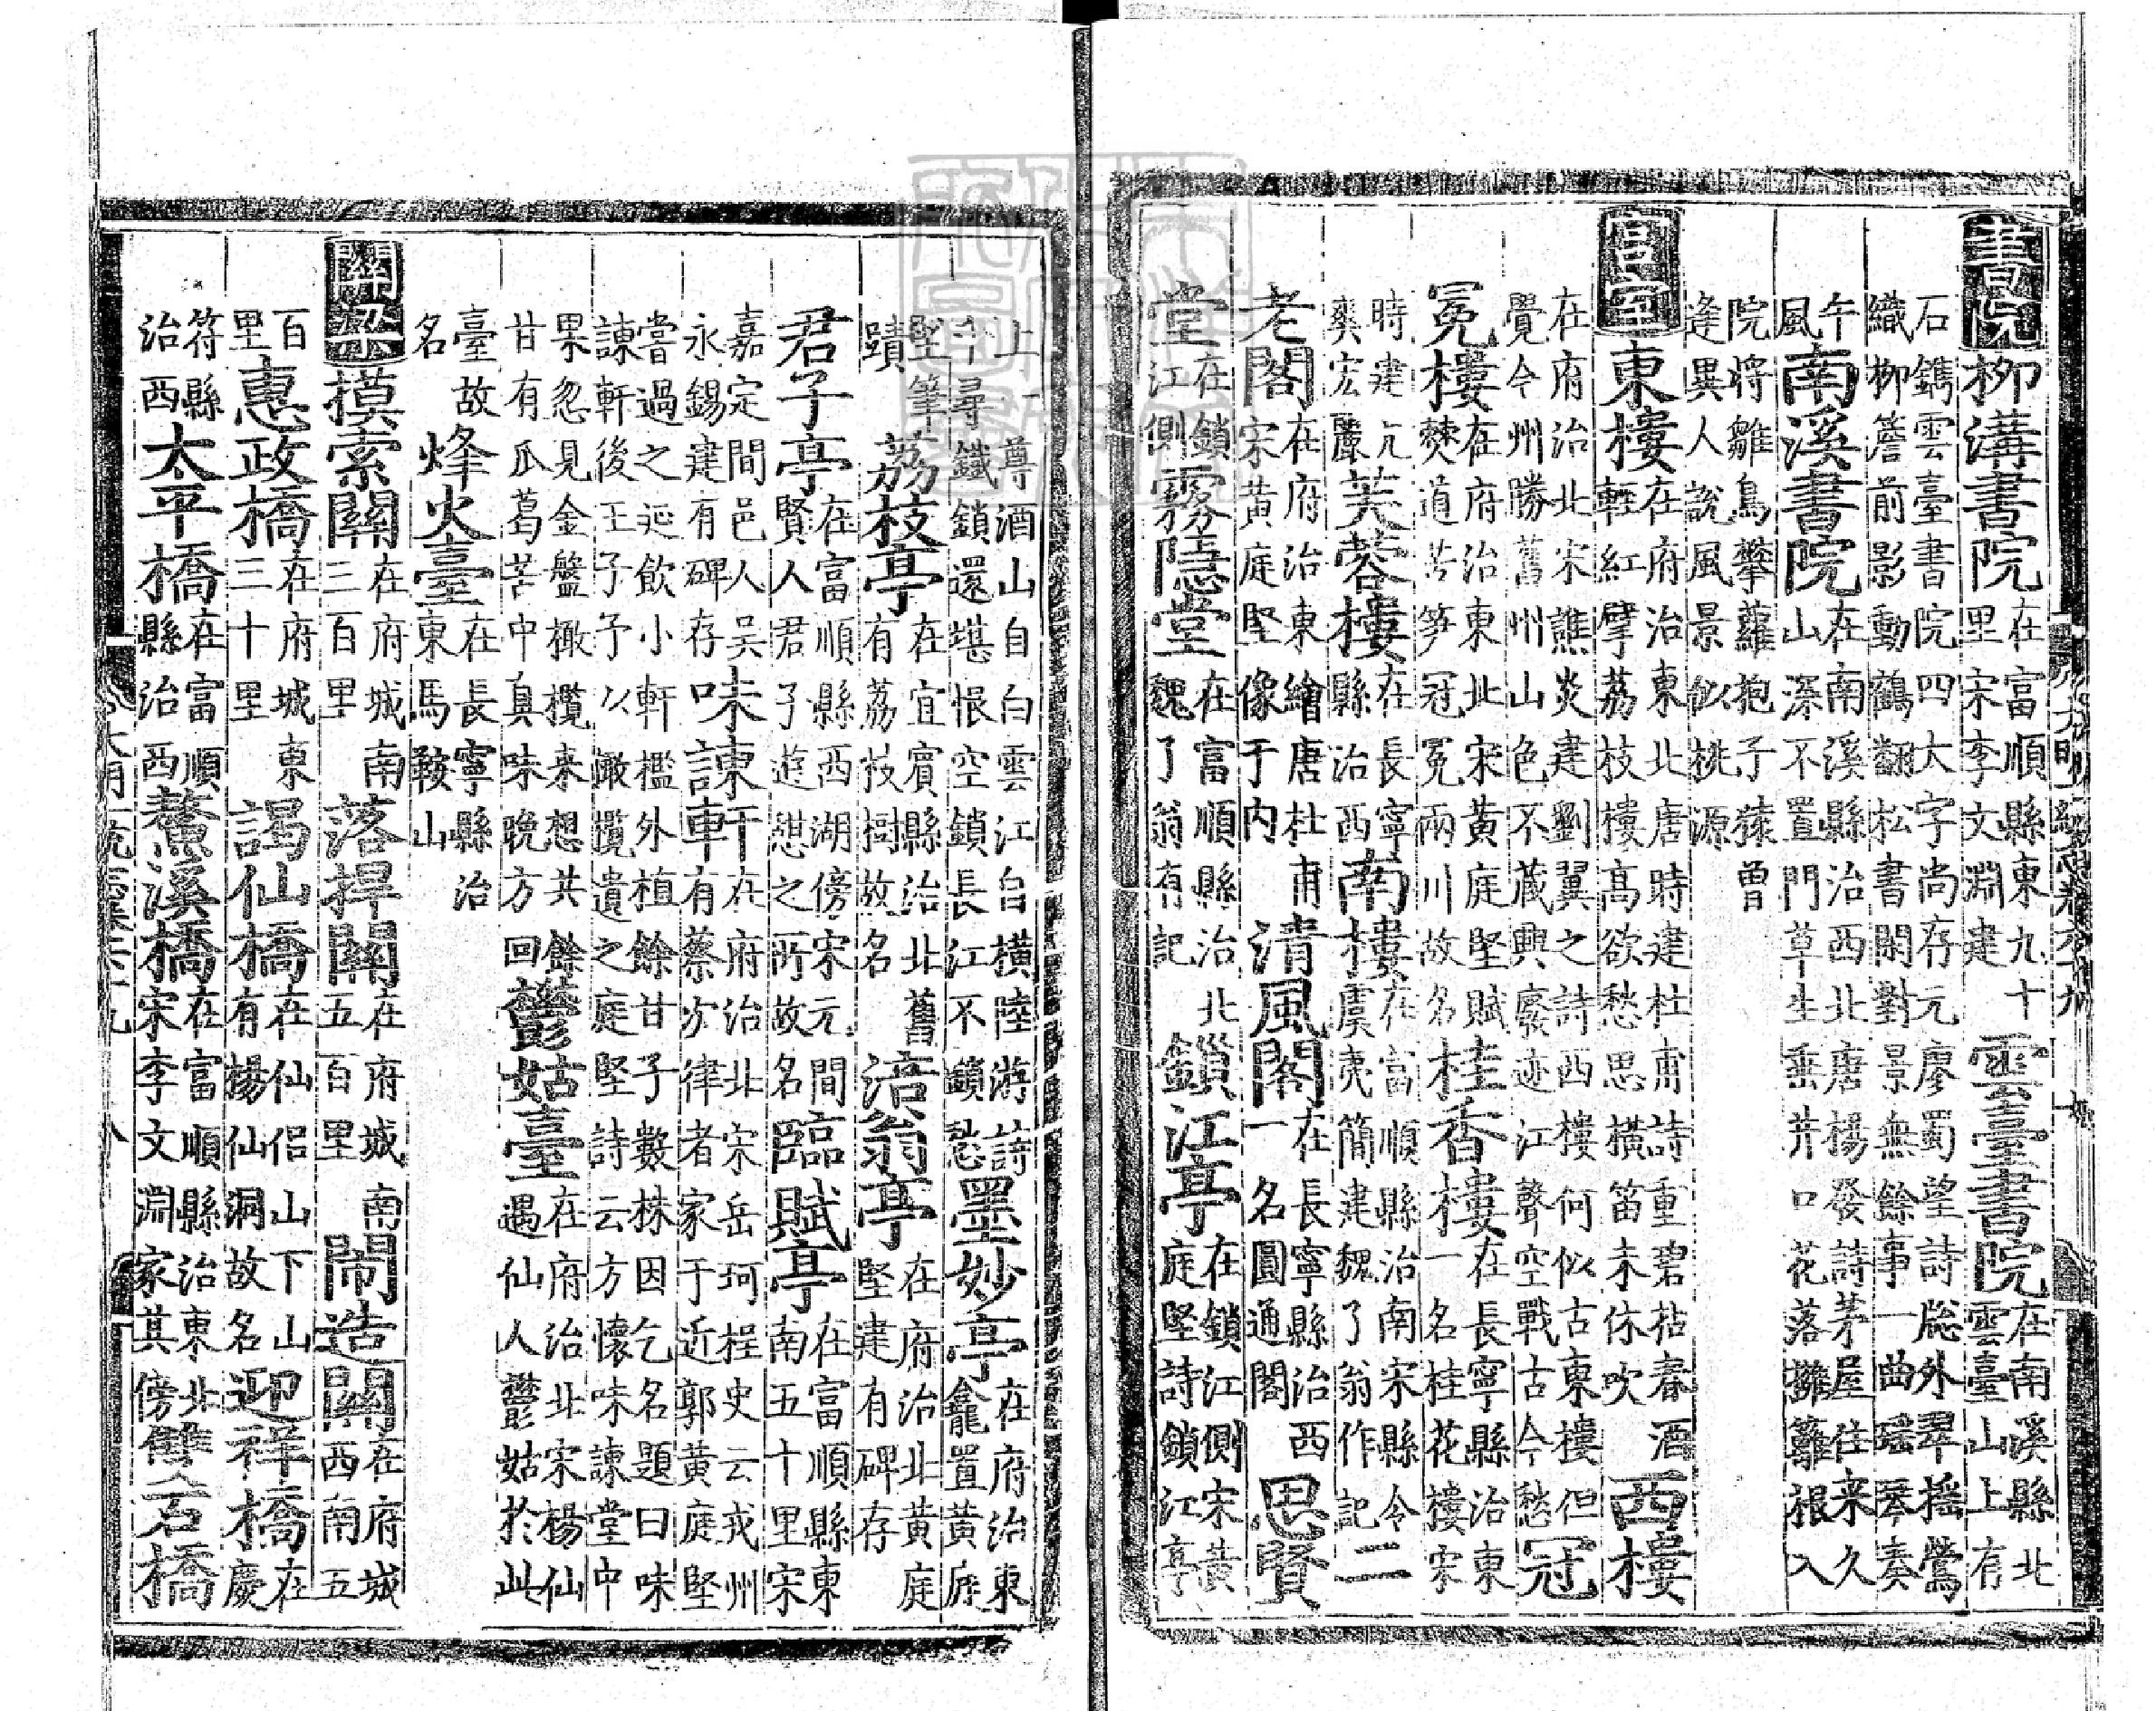 書院柳溝書院在富順縣東九十里宋李文淵建雲臺書院在南溪縣北雲臺山上有
石鐫雲臺書院四大字尚存元廖蜀望詩牕外翠搖鶯織柳簷前影動鶴翻松書閑對景無餘事一曲瑤琴奏
午風南溪書院在南溪縣治西北唐楊發詩茅屋住来久山深不置門草生垂井口花落擁籬根入
院將雛鳥攀蘿抱子猿曾逢異人說風景似桃源
宮室東樓在府治東北唐時建杜甫詩重碧拈春酒輕紅擘荔枝樓高欲愁思橫笛未休吹西樓
在府治北宋譙炎建劉翼之詩西樓何似古東樓但覺今州勝舊州山色不藏興廢迹江聲空戰古今愁冠
冕樓在府治東北宋黃庭堅賦僰道苦笋冠冕兩川故名桂香樓在長寧縣治東一名桂花樓宋
時建亢爽宏麗芙蓉樓在長寧縣治西南樓在富順縣治南宋縣令虞夷簡建魏了翁作記二
老閣在府治東繪唐杜甫宋黃庭堅像于内清風閣在長寧縣治西一名圓通閣思賢
堂在鎖江側霧隱堂在富順縣治北魏了翁有記鎖江亭在鎖江側宋黃庭堅詩鎖江亭
上一尊酒山自白雲江自橫陸游詩千尋鐵鎖還堪恨空鎖長江不鎖愁墨妙亭在府治東龕置黃庭
堅筆蹟荔枝亭在宜賓縣治北舊有荔枝樹故名涪翁亭在府治北黃庭堅建有碑存
君子亭在富順縣西湖傍宋元間賢人君子遊憇之所故名臨賦亭在富順縣東南五十里宋
嘉定間邑人吳永錫建有碑存味諫軒在府治北宋岳珂桯史云戎州有蔡次律者家于近郭黃庭堅
嘗過之延飲小軒檻外植餘甘子數株因乞名題曰味諫軒後王子予以橄欖遺之庭堅詩云方懷味諫堂中
果忽見金盤橄欖来想共餘甘有瓜葛苦中真味晚方回鬱姑臺在府治北宋楊仙遇仙人鬱姑於此
臺故名烽火臺在長寧縣治東馬鞍山
關梁摸索關在府城南三百里落捍關在府城南五百里閙造關在府城西南五
百里惠政橋在府城東三十里謁仙橋在仙侣山下山有楊仙洞故名迎祥橋在慶
符縣治西太平橋在富順縣治西鰲溪橋在富順縣治東北宋李文淵家其傍雙石橋